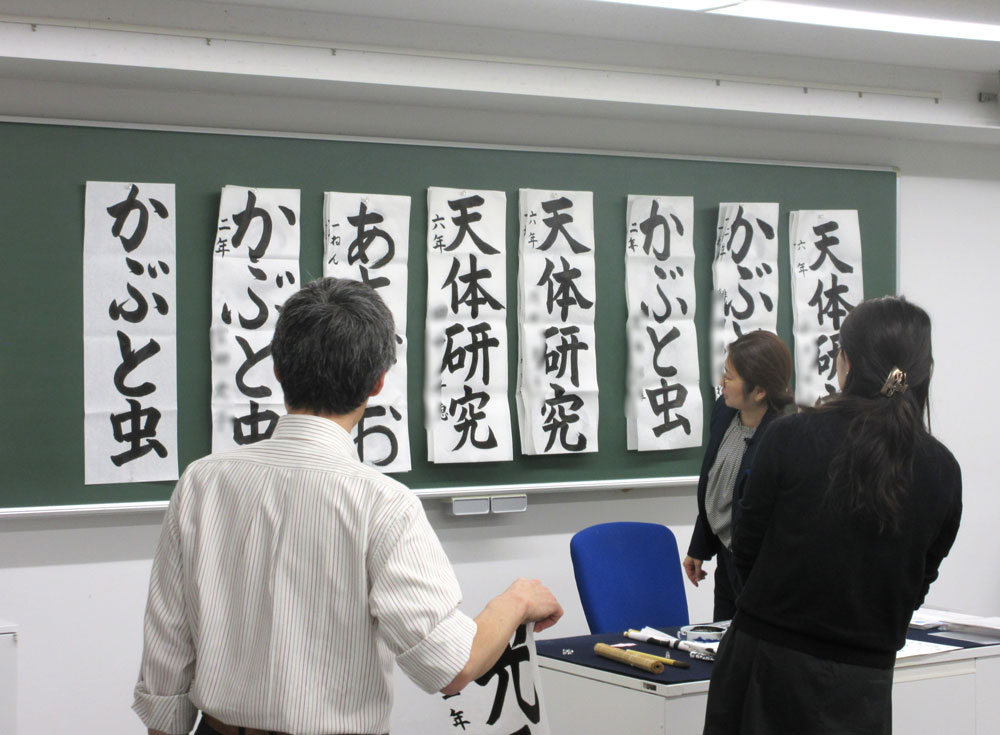 かぶと虫
かぶと
二年
あ
お
一ねん
天体研究
六年
天体研究
六年
かぶと虫
二年
かぶ
天体研
六年
究
年